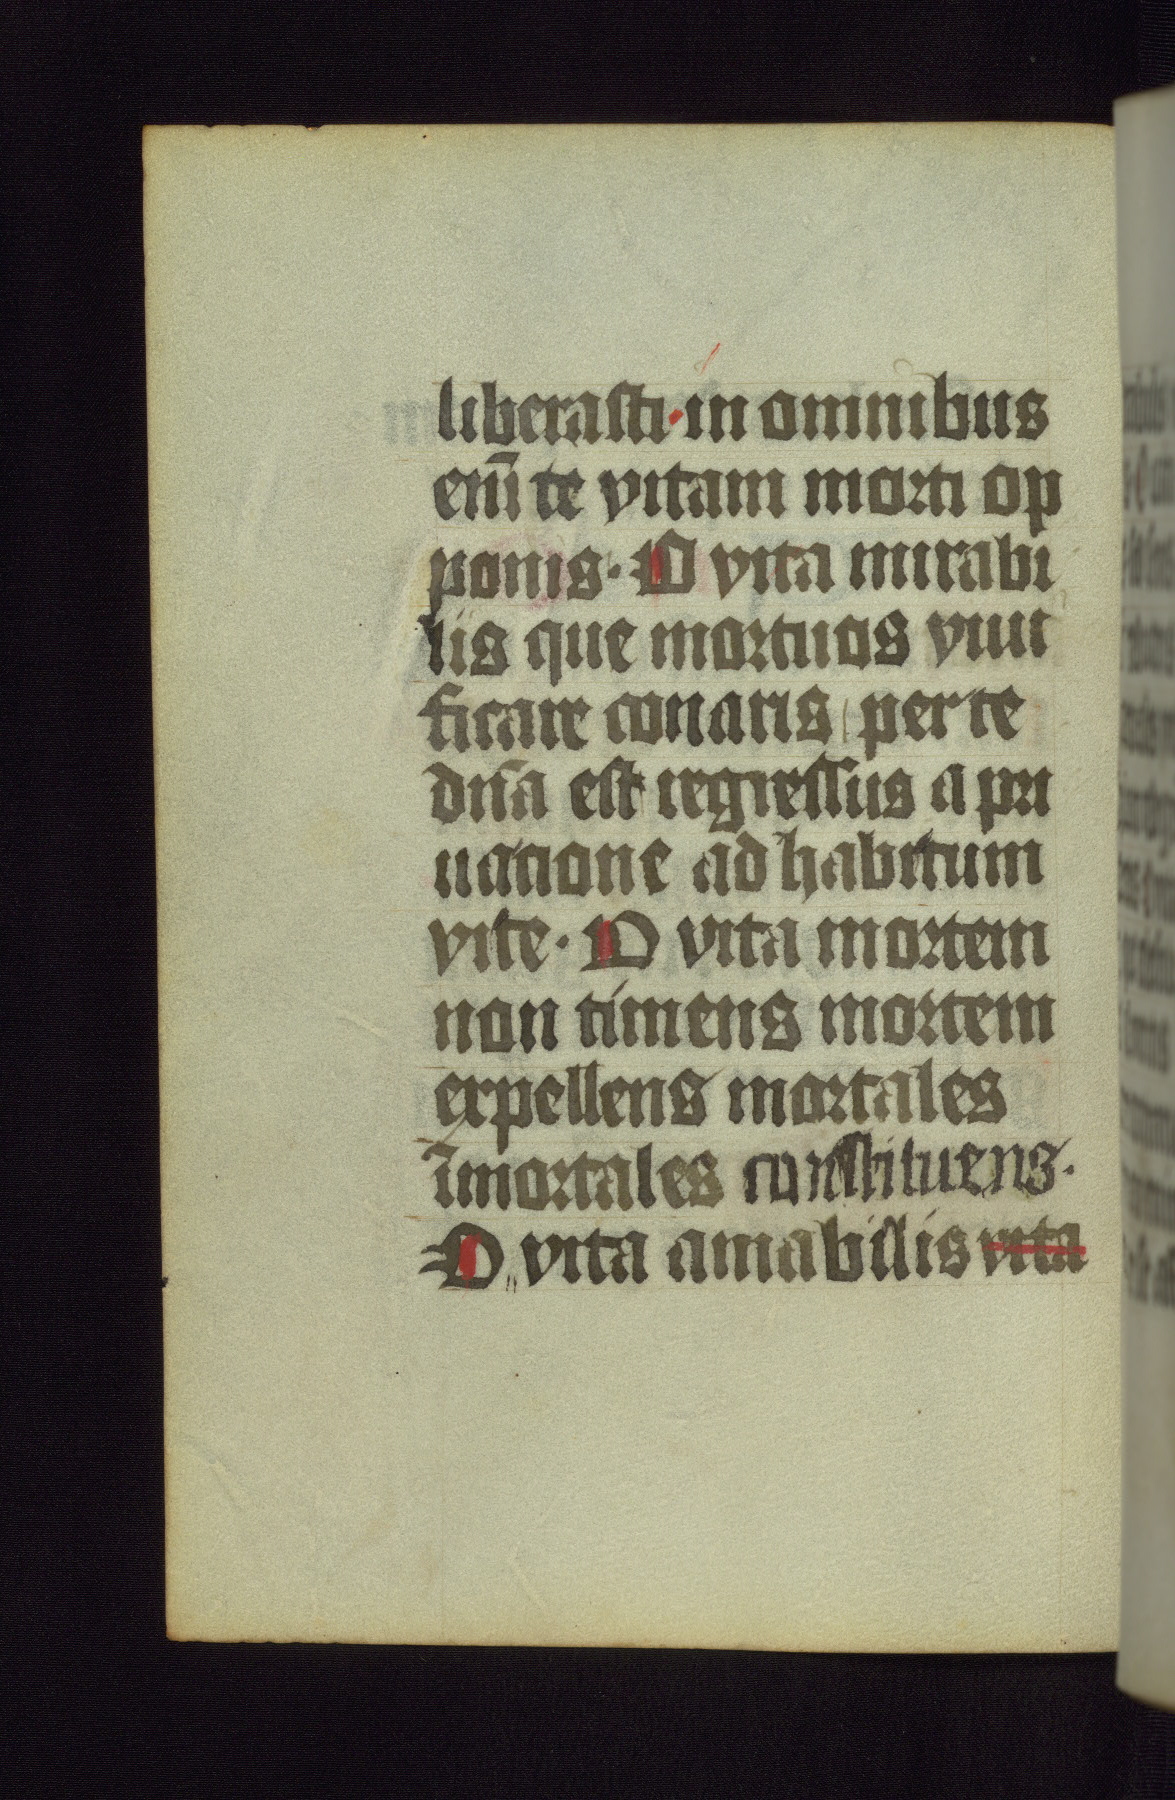 liberasti·in omnibus
em̄ te vitam morti op
ponis· O vita mirabi
lis que mortuos viui
ficare conaris per te
dn̄a est regressus a pri
uatione ad habitum
vite· O vita mortem
non timens mortem
expellens mortales
īmortales constituens·
O vita amabilis vita